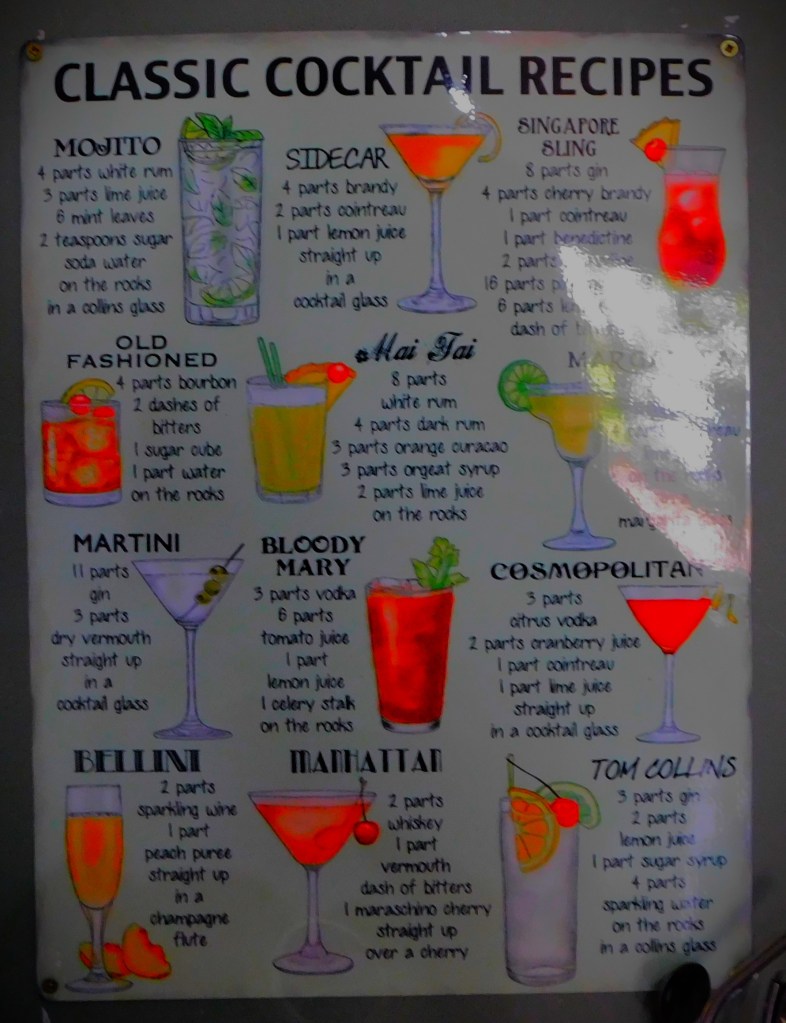 CLASSIC COCKTAIL RECIPES
MOJITO
4 parts white rum
3 parts lime juice
6 mint leaves
2 teaspoons sugar
soda water
on the rocks
in a collins glass
SIDECAR
4 parts brandy
2 parts cointreau
1 part lemon juice
straight up
in a
cocktail glass
SINGAPORE
SLING
8 parts gin
4 parts cherry brandy
1 part cointreau
1 part benedictine
2 parts
16 parts
6 parts
dash of
OLD
FASHIONED
4 parts bourbon
2 dashes of
bitters
1 sugar cube
1 part water
on the rocks
Mai Tai
8 parts
white rum
4 parts dark rum
3 parts orange curacao
3 parts orgeat syrup
2 parts lime juice
on the rocks
on the rocks
margarita
MARTINI
11 parts
gin
3 parts
dry vermouth
straight up
in a
cocktail glass
BLOODY
MARY
3 parts vodka
6 parts
tomato juice
1 part
lemon juice
1 celery stalk
on the rocks
COSMOPOLITAN
3 parts
citrus vodka
2 parts cranberry juice
1 part cointreau
1 part lime juice
straight up
in a cocktail glass
BELLINI
2 parts
sparkling wine
1 part
peach puree
straight up
in a
champagne
flute
MANHATTAN
2 parts
whiskey
1 part
vermouth
dash of bitters
1 maraschino cherry
straight up
over a cherry
TOM COLLINS
3 parts gin
2 parts
lemon juice
1 part sugar syrup
4 parts
sparkling water
on the rocks
in a collins glass